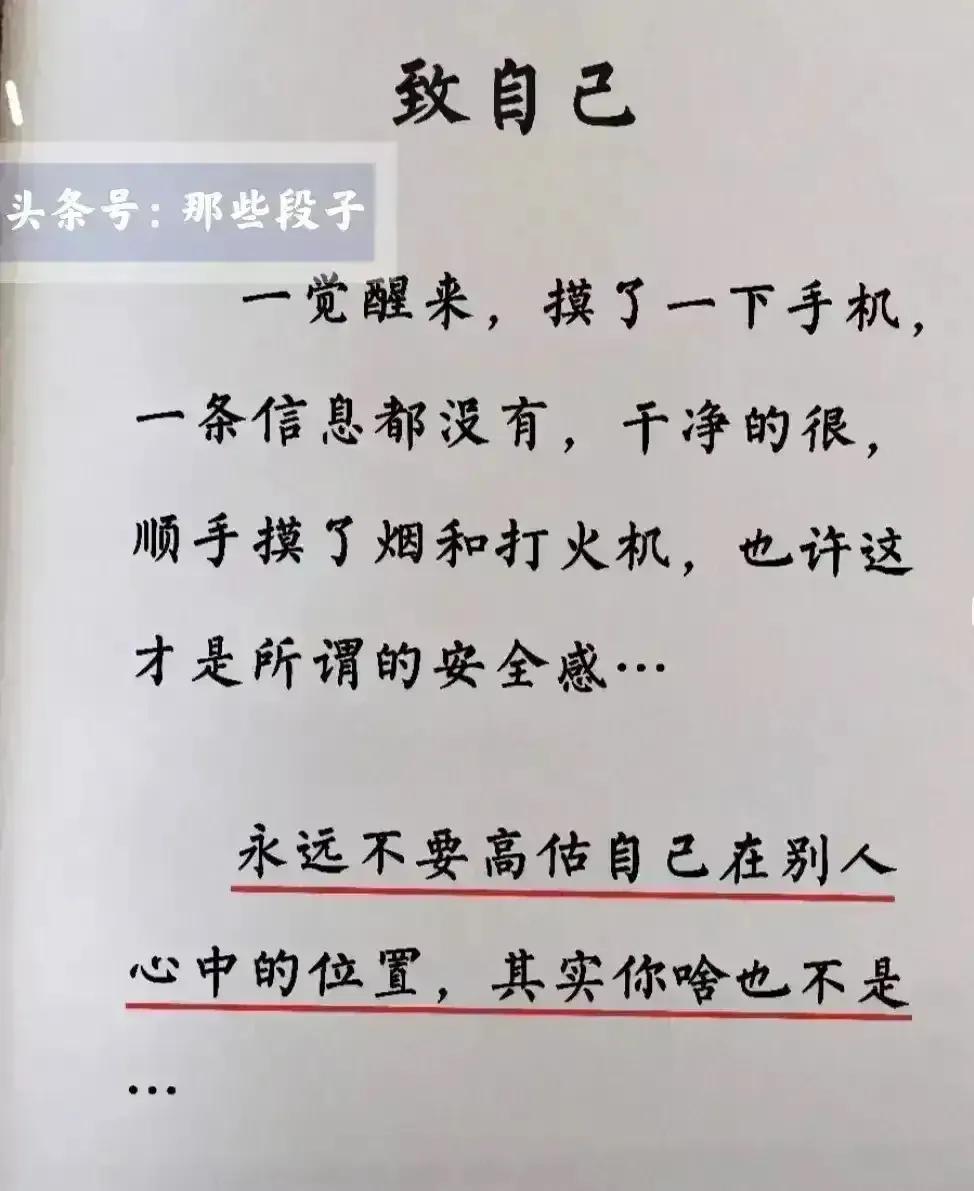 致自己
头条号：那些段子
一觉醒来，摸了一下手机，
一条信息都没有，干净的很，
顺手摸了烟和打火机，也许这
才是所谓的安全感…
永远不要高估自己在别人
心中的位置，其实你啥也不是
…